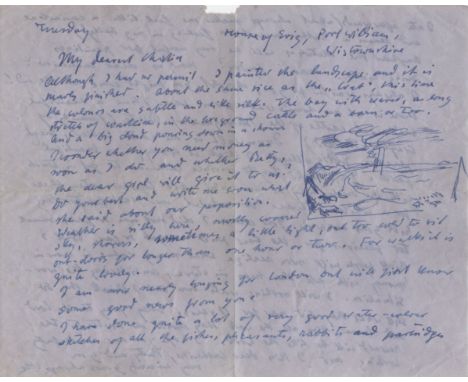 Tuesday House of Elrig, Port William,
Wigtownshire
My dearest
Although I had no permit I painted the landscape and it is
nearly finished. About the same size as the this time
the colours are subtle and like silk. The bay with waves, a long
stretch of coastline, in the foreground cattle and a barn or two.
And a big cloud pouring down in a shower
I wonder whether you need money as
soon as I do and whether Betty,
the dear girl will give it to us.
Do your best and write me soon what
she said about our proposition.
Weather is silly here, mostly covered
sky, showers, sometimes a little light, but too cold to sit
out-doors for longer than one hour or two. For walks it is
quite lovely.
I am now nearly longing for London but will first know
some good news from you.
I have done quite a lot of very good water-colour
sketches of all the fishes, pheasants, rabbits and partridges